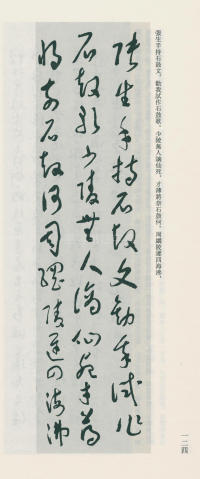 張生手持石鼓文，勸我試作石鼓歌。少陵無人謫仙死，才薄將奈石鼓何。周綱陵遲四海沸，
張生手持石鼓文勸我試作
石鼓歌少陵無人謫仙死才薄
將奈石鼓何周綱陵遲四海沸
一二四